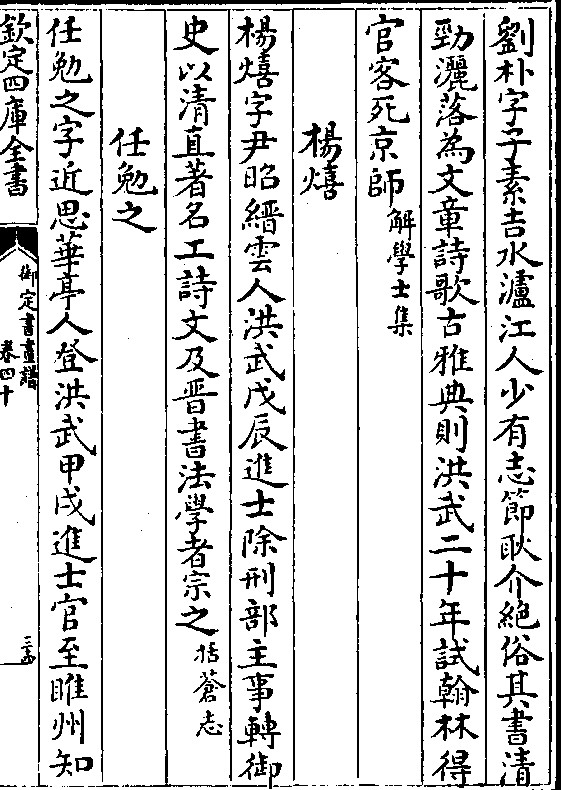 劉朴字子素吉水瀘江人少有志節耿介絶俗其書清
勁灑落為文章詩歌古雅典則洪武二十年試翰林得
官客死京師解學士集
楊熺
楊熺字尹昭縉雲人洪武戊辰進士除刑部主事轉御
史以清直著名工詩文及晉書法學者宗之括蒼志
任勉之
任勉之字近思華亭人登洪武甲戌進士官至睢州知
欽定四庫全書
御定書畫譜
卷四十